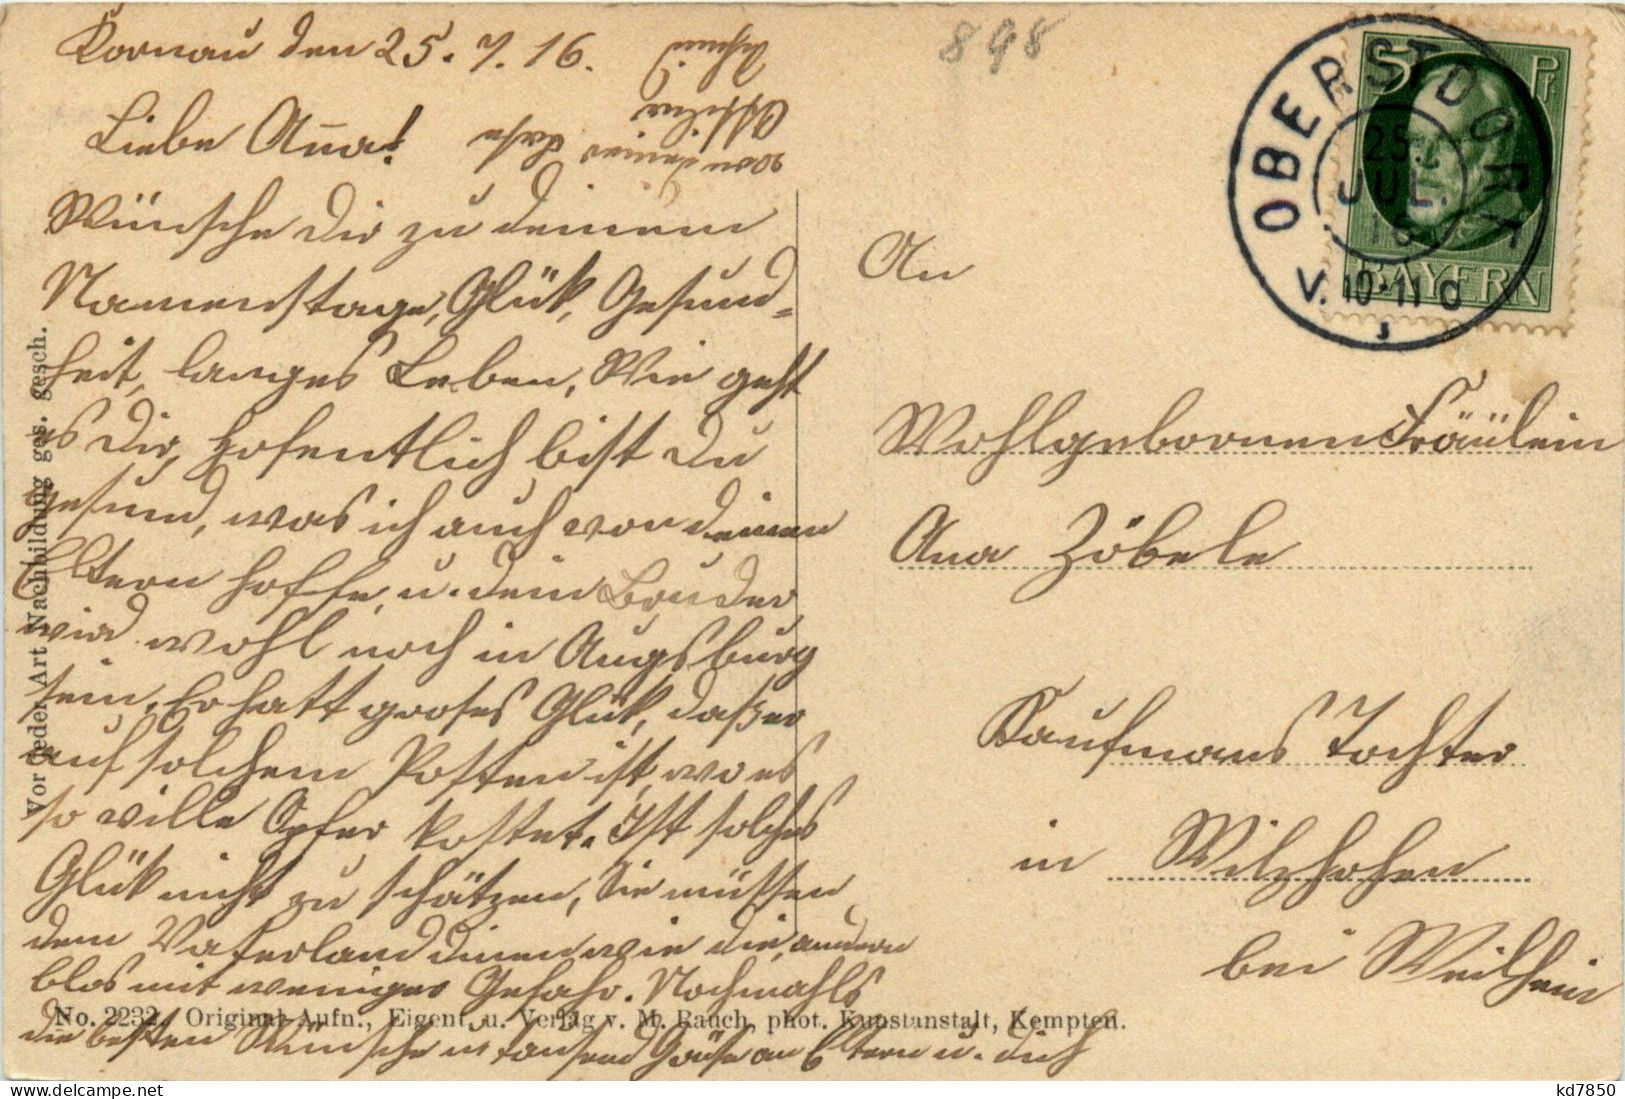 Kornau den 25. 7. 16.
Liebe Anna!
Wünsche Dir zu deinem
Namenstage, Glück, Gesund-
heit, langes Leben, Wie geht
es Dir, Hofentlich bist Du
gesund, was ich auch von deinen
Eltern hoffe, u. dein Bruder
wird wohl noch in Augsburg
sein. Er hatt groses Glück, daß er
auf solchem Posten ist, wo es
so ville Opfer kostet. Ist solches
Glück nicht zu schätzen, Sie müssen
dem Vaterland dinen wie die andern
blos mit weniger Gefahr. Nochmahls
die besten Wünsche u. tausend Grüße an Eltern u. dich
von deiner
Ottilie
898
OBERSTDORF
25.
JUL.
16
V. 10-11 d
5 Pf
BAYERN
An
Wohlgebornen Fräulein
Anna Zöbele
Kaufmans Tochter
in Wilzhofen
bei Weilheim
Vor jeder Art Nachbildung ges. gesch.
No. 2232. Original-Aufn., Eigent. u. Verlag v. M. Rauch, phot. Kunstanstalt, Kempten.
kd7850